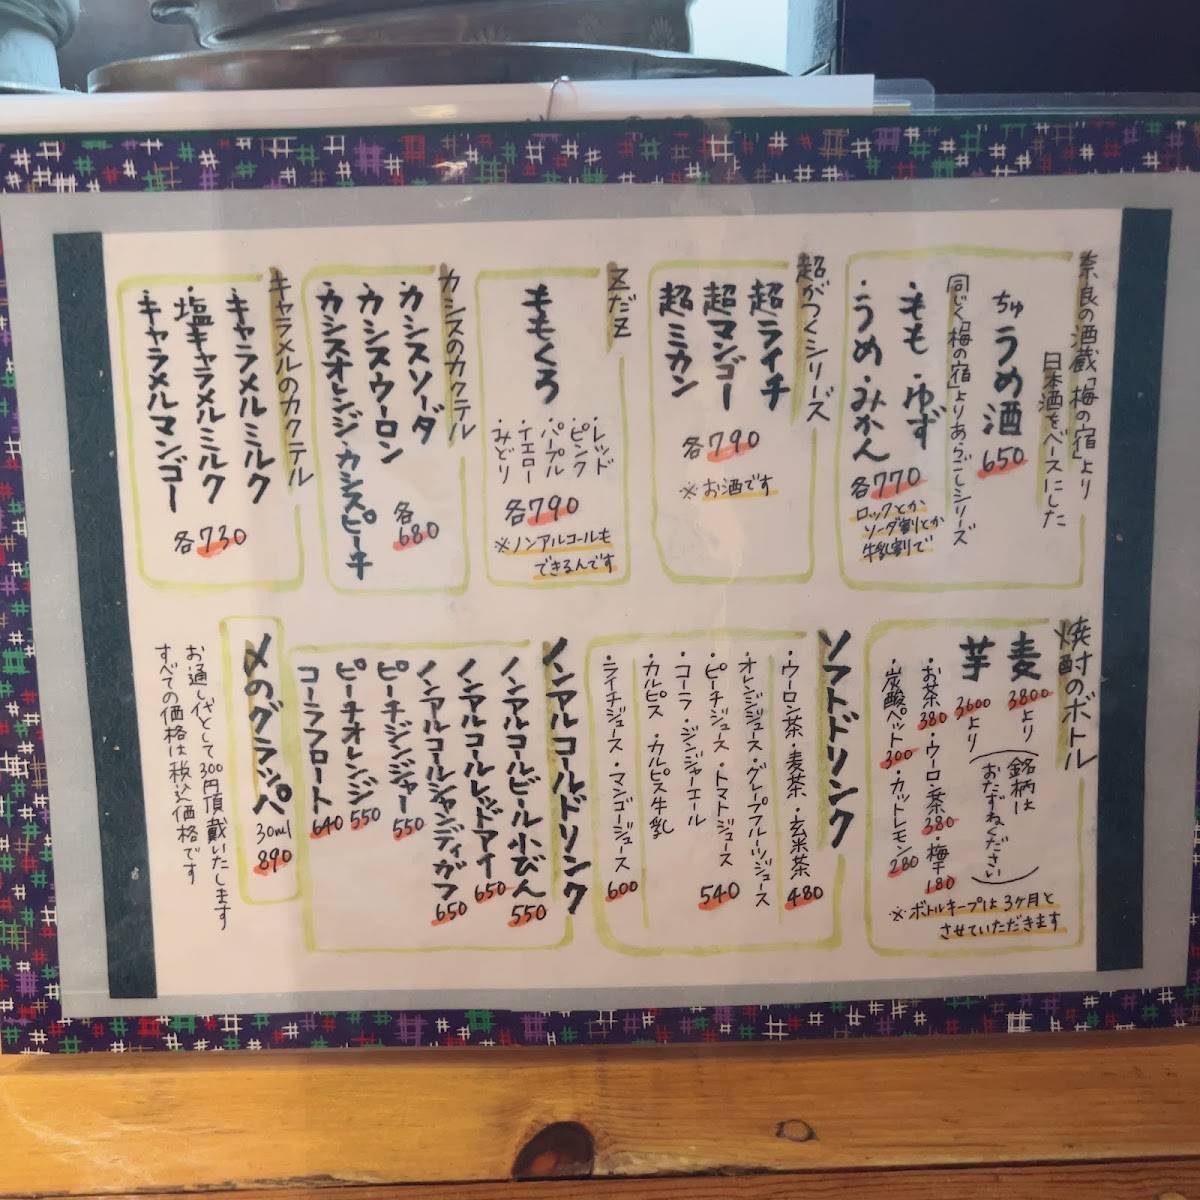 奈良の酒蔵「梅の宿」より
日本酒をベースにした
ちゅうめ酒 650
同じく「梅の宿」よりあらごしシリーズ
・もも・ゆず
・うめ・みかん
各770
ロックとか
ソーダ割とか
牛乳割で
超がつくシリーズ
超ライチ
超マンゴー
超ミカン
各790
※お酒です
ZだZ
ももくろ
・レッド
・ピンク
・パープル
・イエロー
・みどり
各790
※ノンアルコールも
できるんです
カシスのカクテル
・カシスソーダ
・カシスウーロン
・カシスオレンジ・カシスピーチ
各680
キャラメルのカクテル
・キャラメルミルク
・塩キャラメルミルク
・キャラメルマンゴー
各730
焼酎のボトル
麦 3800より
芋 3600より
(銘柄は
おたずねください)
・お茶380・ウーロン茶380・梅干180
・炭酸ペット300・カットレモン280
※ボトルキープは3ヶ月と
させていただきます
ソフトドリンク
・ウーロン茶・麦茶・玄米茶 480
・オレンジジュース・グレープフルーツジュース
・ピーチジュース・トマトジュース 540
・コーラ・ジンジャーエール
・カルピス・カルピス牛乳
・ライチジュース・マンゴージュース 600
ノンアルコールドリンク
ノンアルコールビール小びん 550
ノンアルコールレッドアイ 650
ノンアルコールシャンディガフ 650
ピーチジンジャー 550
ピーチオレンジ 550
コーラフロート 640
〆のグラッパ 30ml 890
お通し代として300円頂戴いたします
すべての価格は税込価格です